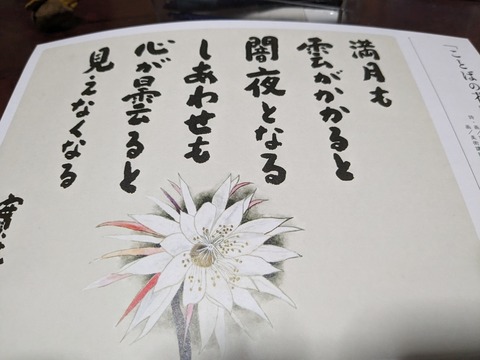 「ことばの
満月も
雲がかかると
闇夜となる
しあわせも
心が曇ると
見えなくなる